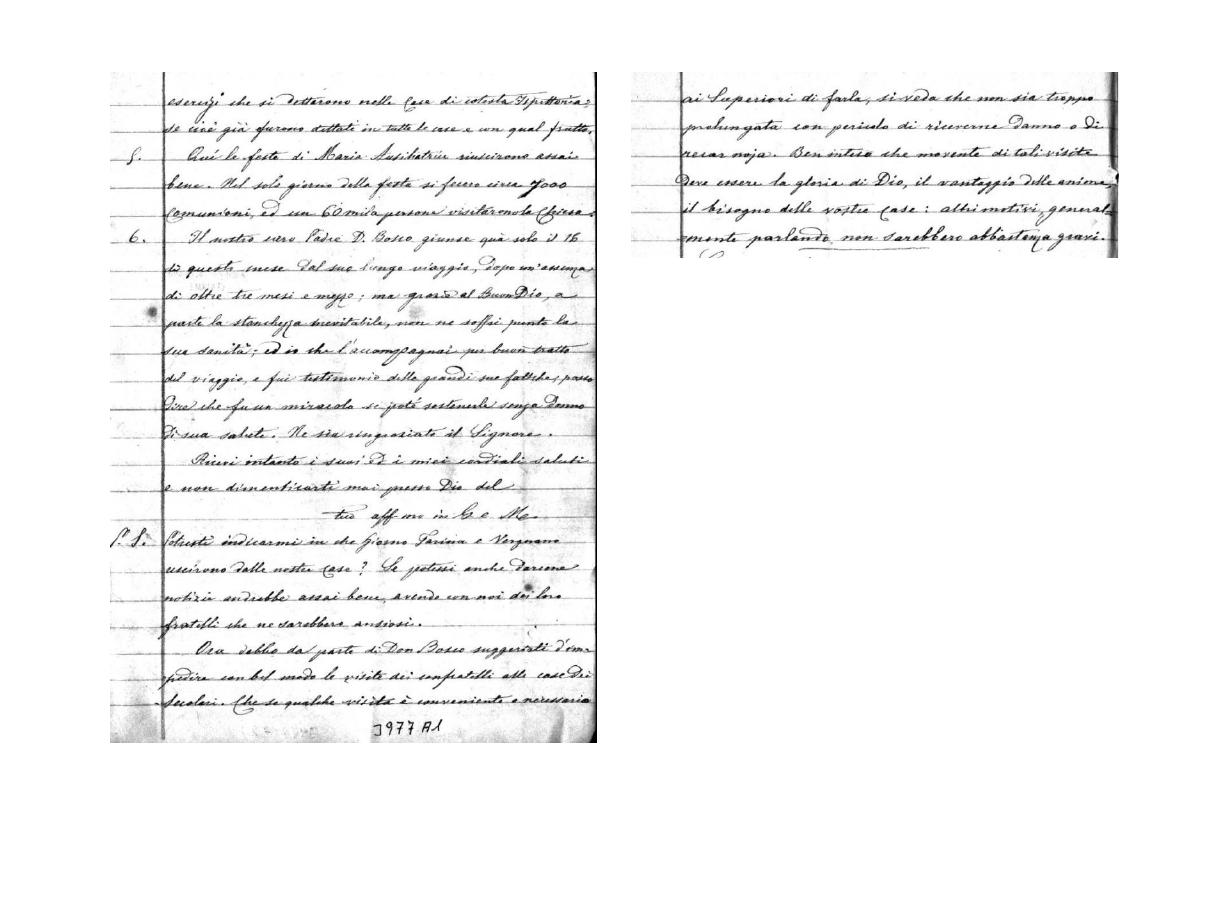 esercizi che si dettarono nelle Case di cotesta Ispettoria:
se cioè già furono dettati in tutte le case e con qual frutto.
5. Qui le feste di Maria Ausiliatrice riuscirono assai
bene. Nel solo giorno della festa si fecero circa 7000
Comunioni, ed un 60 mila persone visitarono la Chiesa.
6. Il nostro caro Padre D. Bosco giunse quà solo il 16
di questo mese dal suo lungo viaggio, dopo un'assenza
di oltre tre mesi e mezzo; ma grazie al Buon Dio, a
parte la stanchezza inevitabile, non ne soffrì punto la
sua sanità; ed io che l'accompagnai per buon tratto
del viaggio, e fui testimonio delle grandi sue fatiche, posso
dire che fu un miracolo se potè sostenerle senza danno
di sua salute. Ne sia ringraziato il Signore.
Ricevi intanto i suoi ed i miei cordiali saluti
e non dimenticarti mai presso Dio del
tuo aff mo in G e M.
P. S. Potresti indicarmi in che giorno Farina e Vergnano
uscirono dalle nostre case? Se potessi anche darcene
notizie andrebbe assai bene, avendo con noi dei loro
fratelli che ne sarebbero ansiosi.
Ora debbo da parte di Don Bosco suggerirti d'im-
pedire con bel modo le visite dei confratelli alle case dei
Secolari. Che se qualche visita è conveniente o necessaria
J977 A1
ai Superiori di farla, si veda che non sia troppo
prolungata con pericolo di riceverne danno o di
recar noja. Ben inteso che movente di tali visite
deve essere la gloria di Dio, il vantaggio delle anime,
il bisogno delle vostre Case: altri motivi, general=
mente parlando, non sarebbero abbastanza gravi.